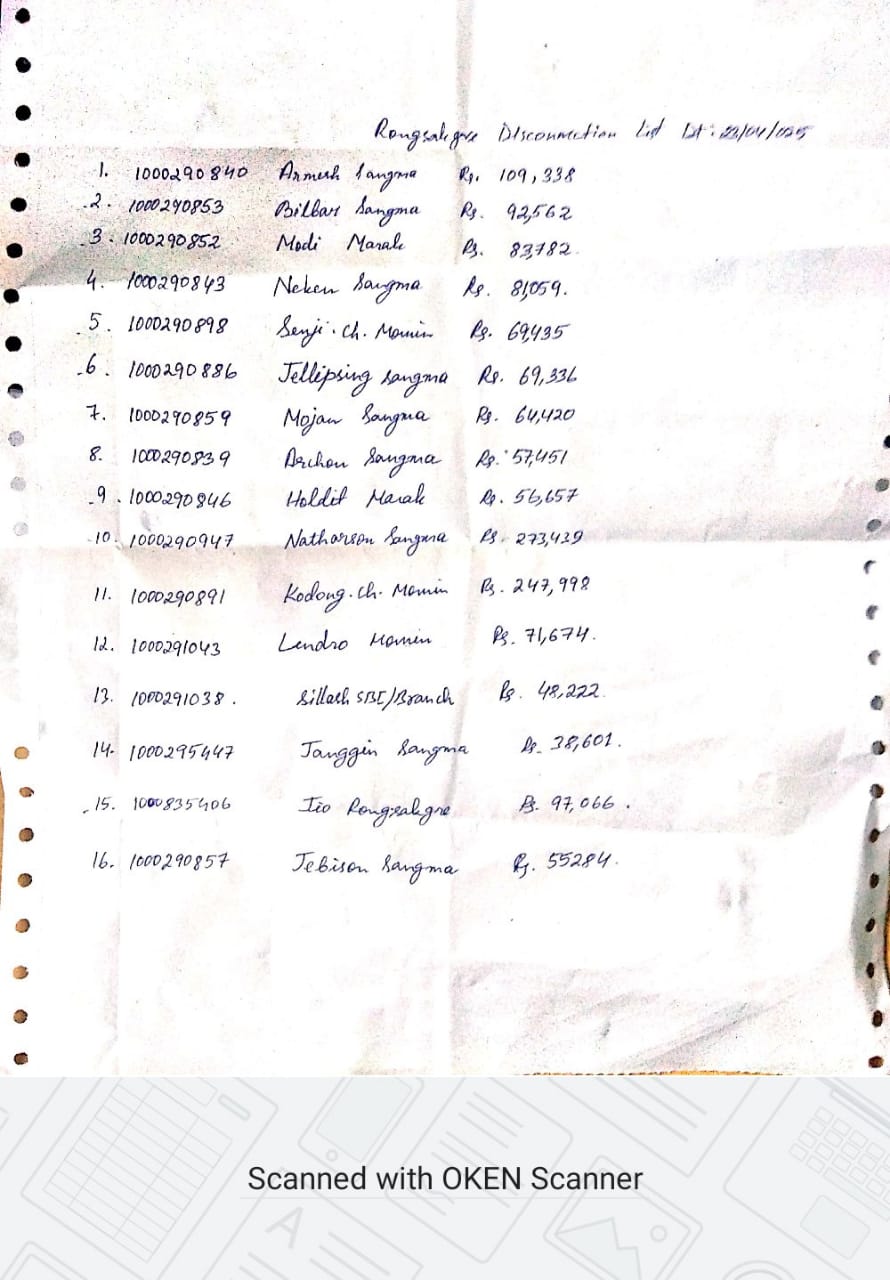 Rongsakgre Disconnection List Dt: 22/04/2025
1. 1000290840 Armesh Sangma Rs. 109,338
2. 1000290853 Bilbar Sangma Rs. 92,562
3. 1000290852 Modi Marak Rs. 83,782.
4. 1000290843 Neken Sangma Rs. 81,059.
5. 1000290898 Senji. Ch. Momin Rs. 69,435
6. 1000290886 Jellipsing Sangma Rs. 69,336
7. 1000290859 Mojan Sangma Rs. 64,420
8. 1000290839 Archon Sangma Rs. 57,451
9. 1000290846 Holdit Marak Rs. 56,657
10. 1000290947 Natharson Sangma Rs. 273,439
11. 1000290891 Kodong. Ch. Momin Rs. 247,998
12. 1000291043 Lendro Momin Rs. 71,674.
13. 1000291038. SBI/Branch Rs. 48,222
14. 1000295447 Janggin Sangma Rs. 38,601.
15. 1000835406 Rongsakgre Rs. 97,066.
16. 1000290857 Jebison Sangma Rs. 55284.
Scanned with OKEN Scanner